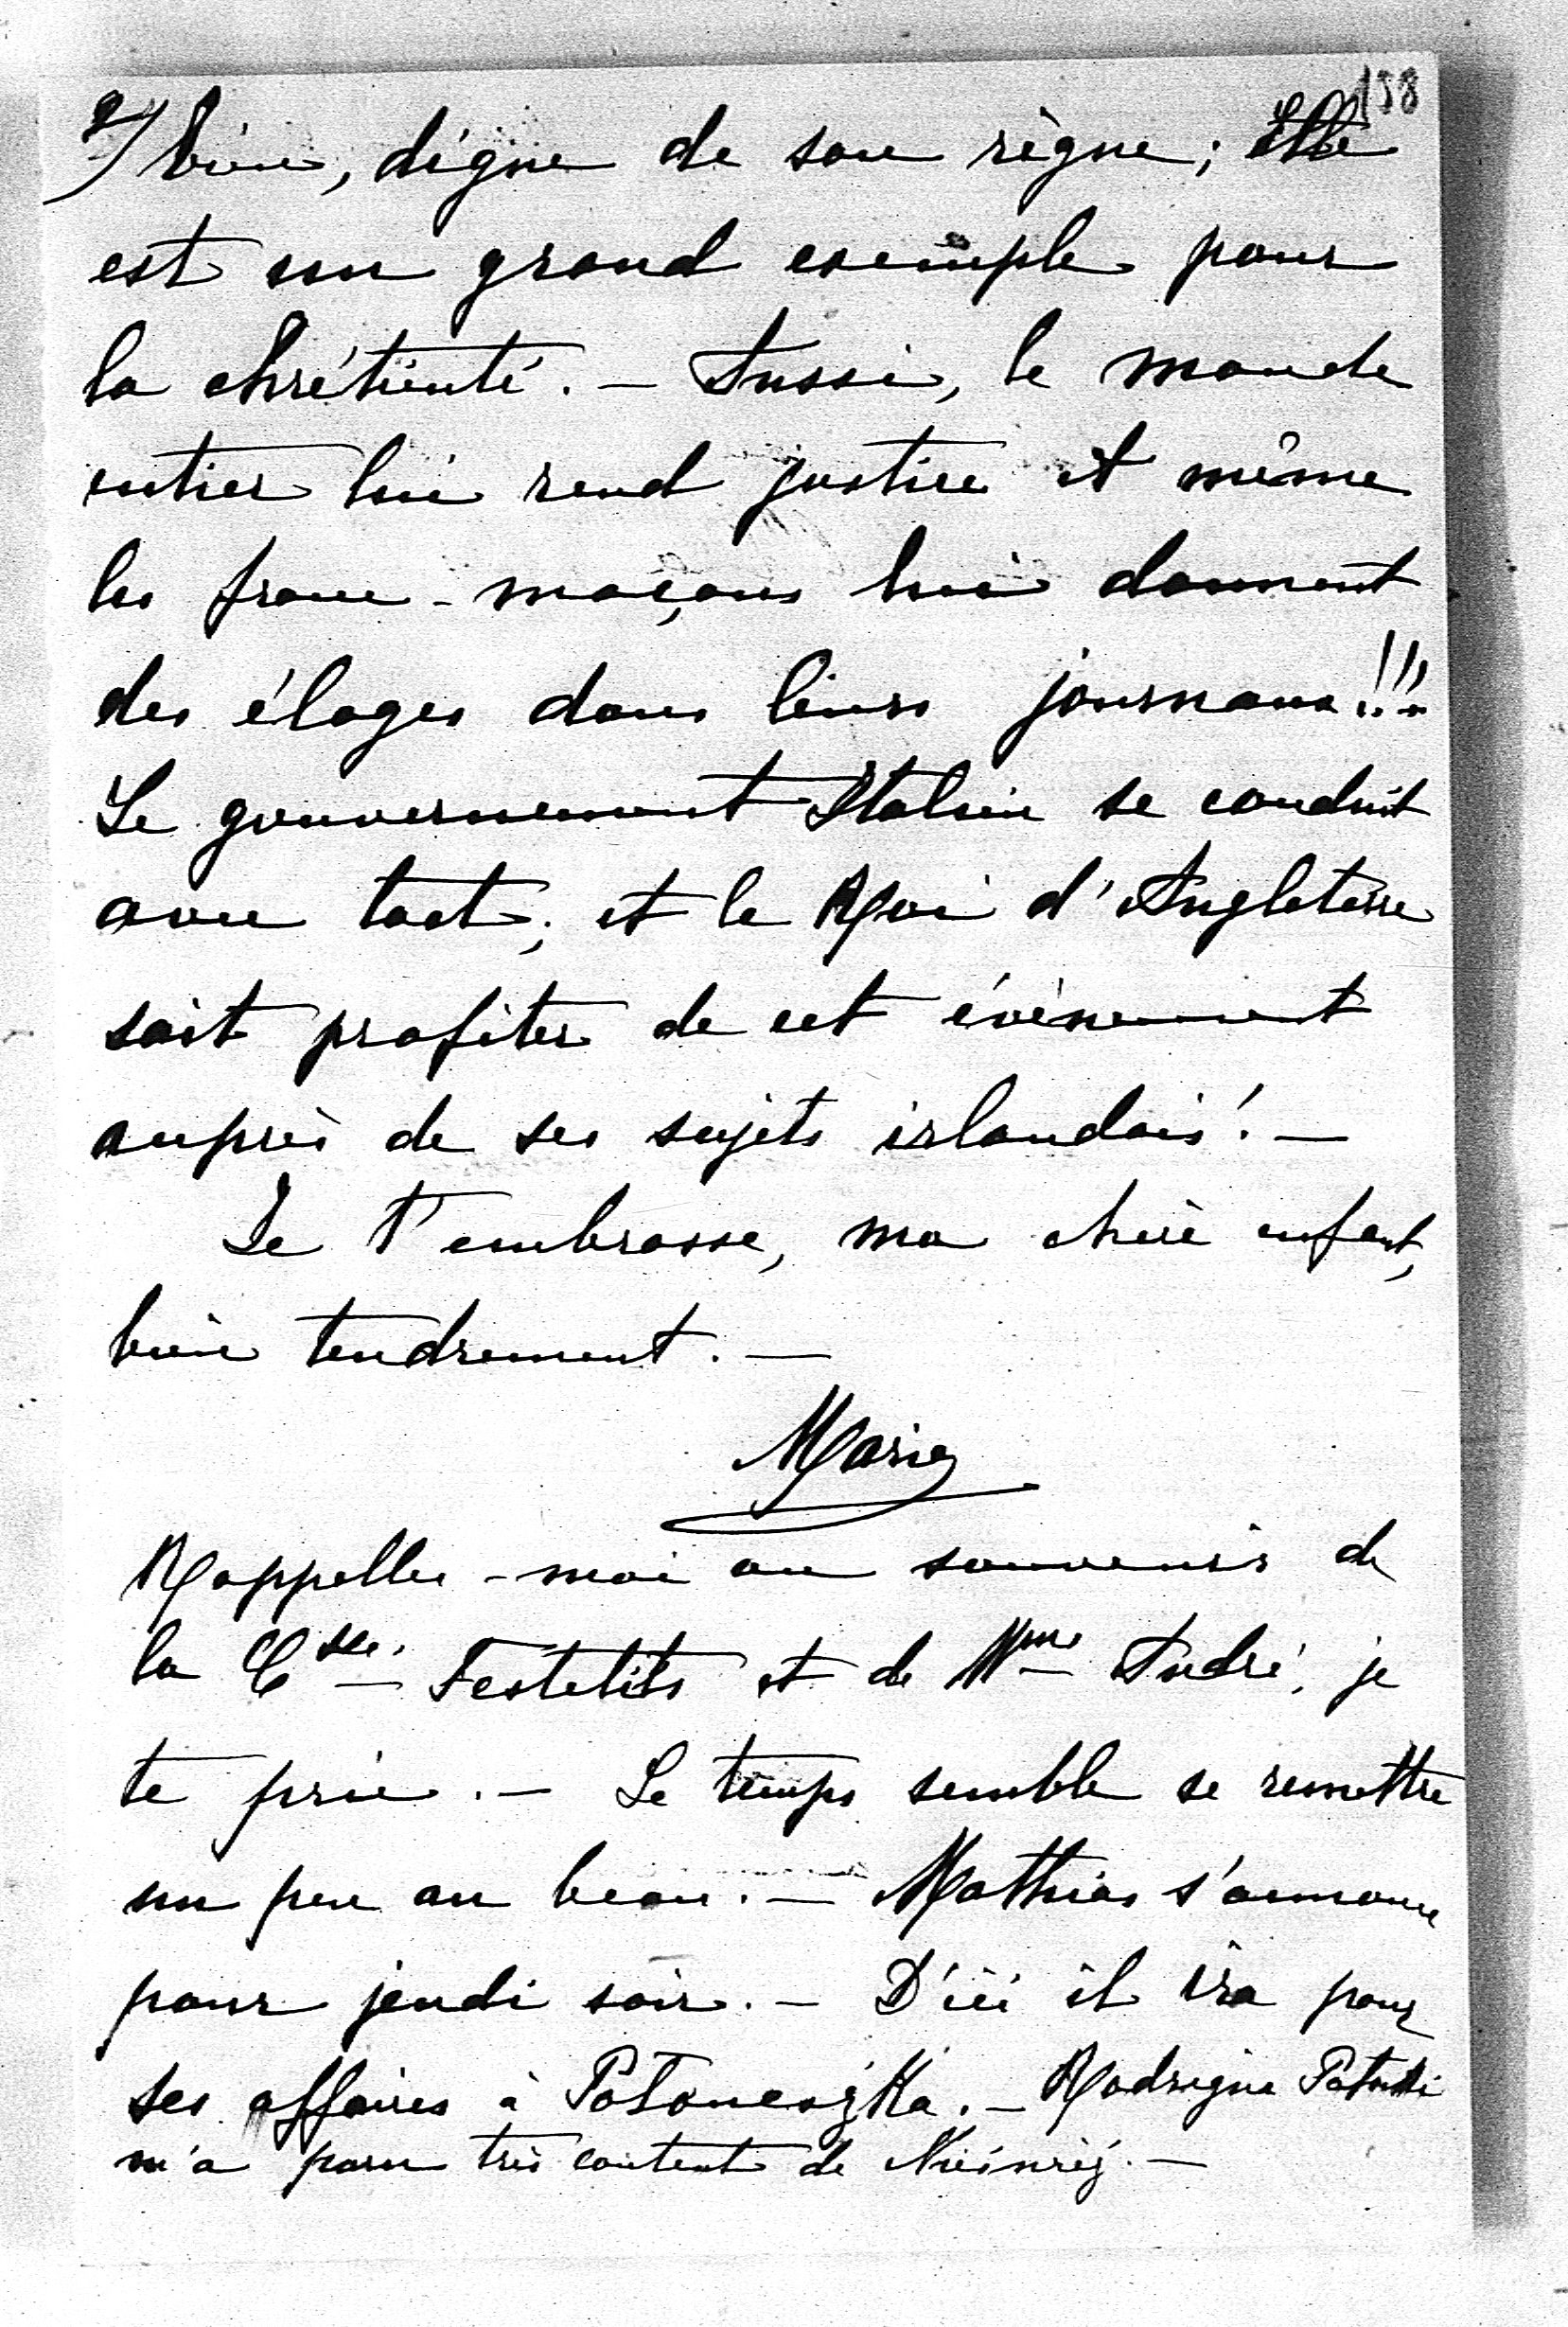 158
2/ bien, digne de son règne; Elle
est un grand exemple pour
la chrétienté. — Aussi, le monde
entier lui rend justice et même
les franc-maçons lui donnent
des éloges dans leurs journaux!!!
Le gouvernement Italien se conduit
avec tact; et le Roi d'Angleterre
sait profiter de cet événement
auprès de ses sujets irlandais! —
Je t'embrasse, ma chère enfant,
bien tendrement. —
Marie
Rappelles-moi au souvenir de
la Csse. Festetits et de Mme André, je
te prie. — Le temps semble se remettre
un peu au beau. — Mathias s'annonce
pour jeudi soir. — D'ici il ira pour
ses affaires à —
m'a paru très content de —